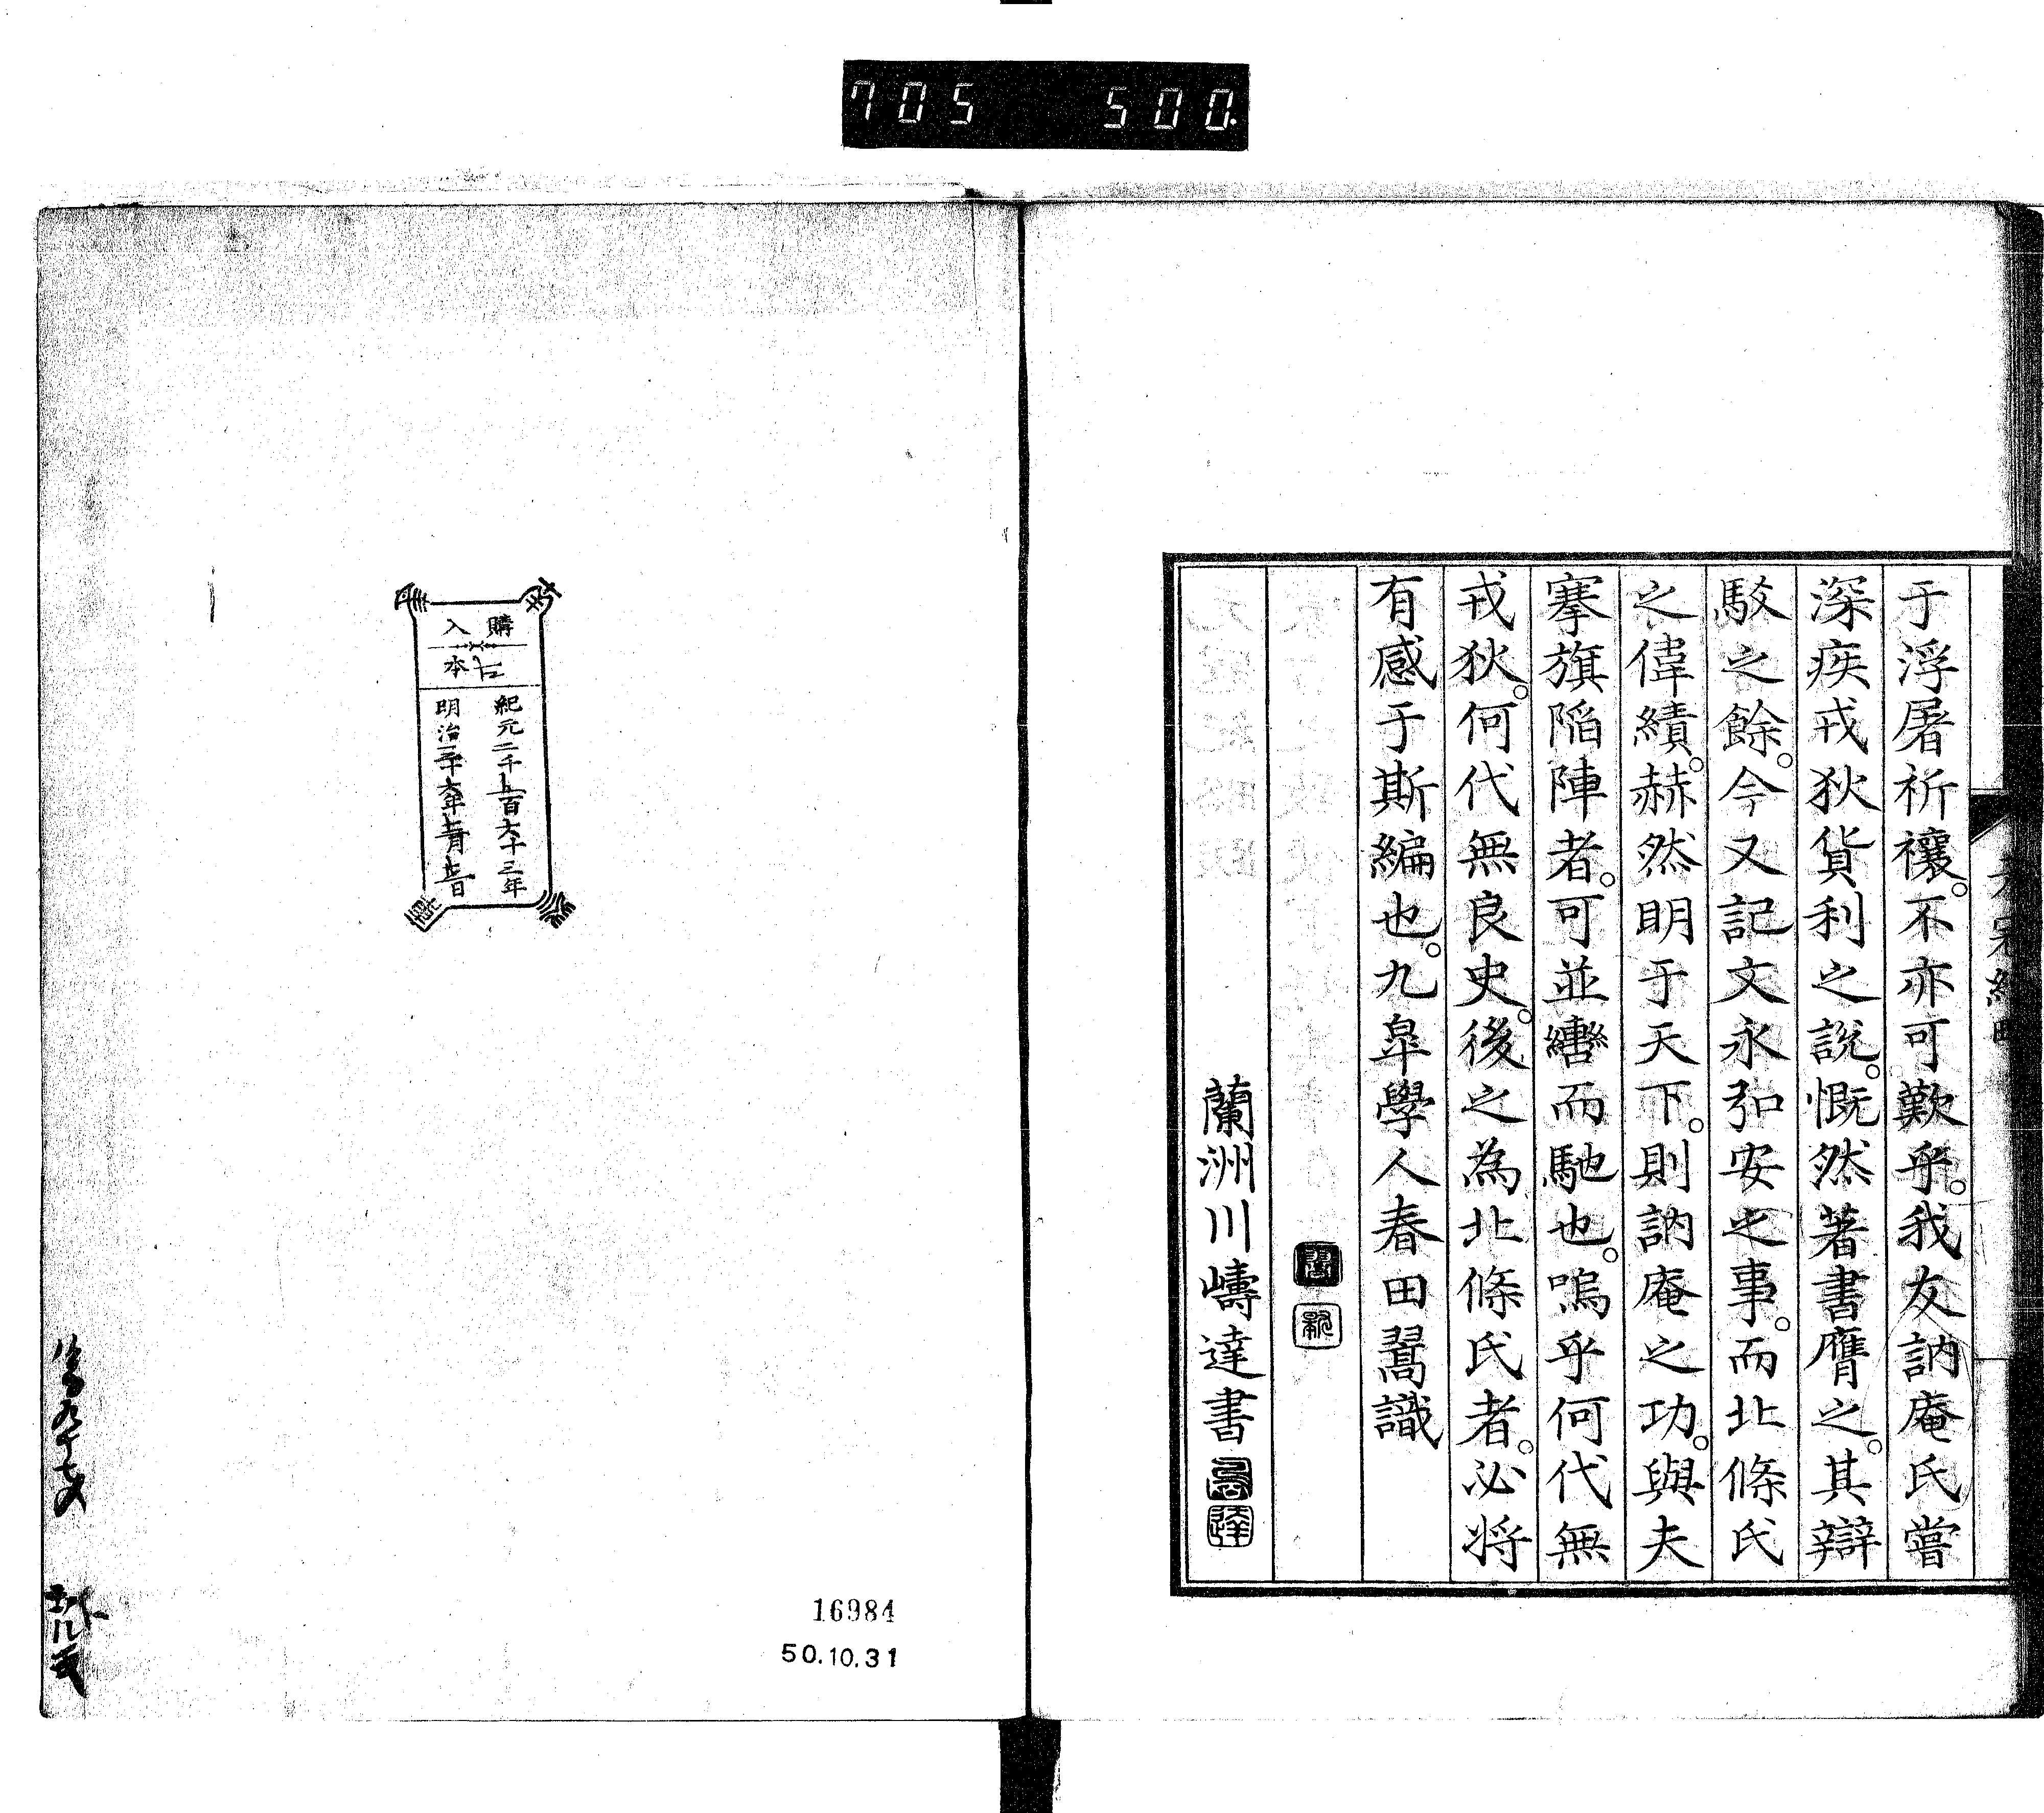 705 500.
于浮屠祈禳。不亦可歎乎。我友訥庵氏嘗
深疾戎狄貨利之說。慨然著書膺之。其辯
駁之餘。今又記文永弘安之事。而北條氏
之偉績。赫然明于天下。則訥庵之功。與夫
搴旗陷陣者。可並轡而馳也。嗚乎何代無
戎狄。何代無良史。後之為北條氏者。必将
有感于斯編也。九皐學人春田翯識
蘭洲川嶹達書
購入
古本
紀元二千五百六十三年
明治三十六年
16984
50.10.31